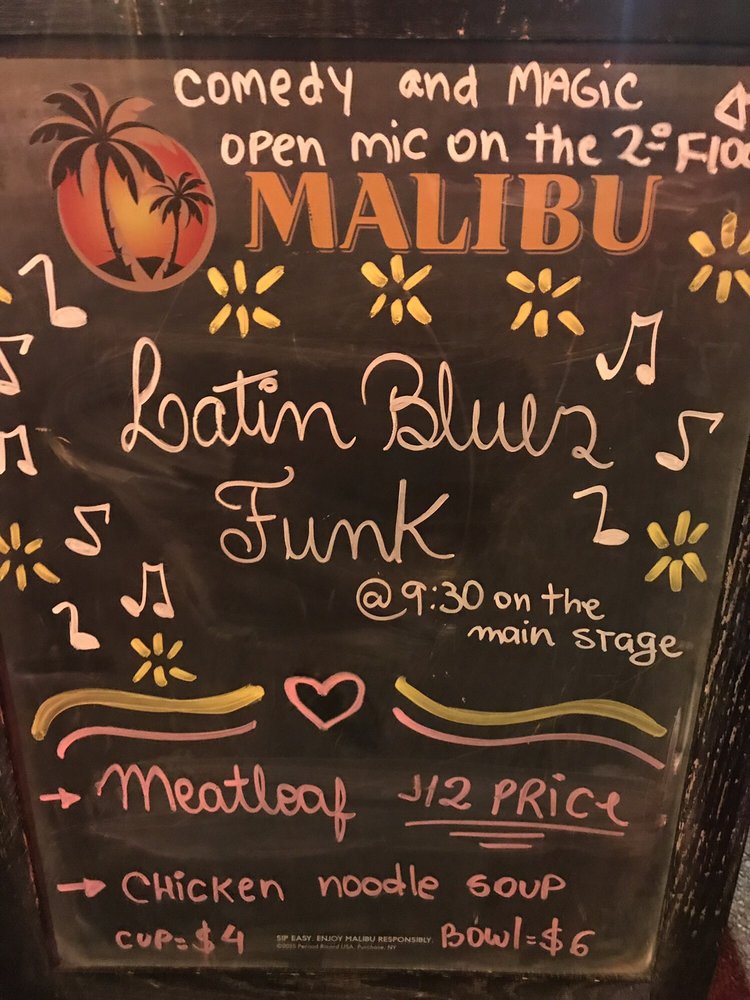 comedy and MAGiC
open mic on the 2º
MALIBU
Latin Blues
Funk
@9:30 on the
main stage
Meatloaf 1/2 PRice
CHicken noodle soup
CUP=$4 BOWl=$6
SIP EASY. ENJOY MALIBU RESPONSIBLY.